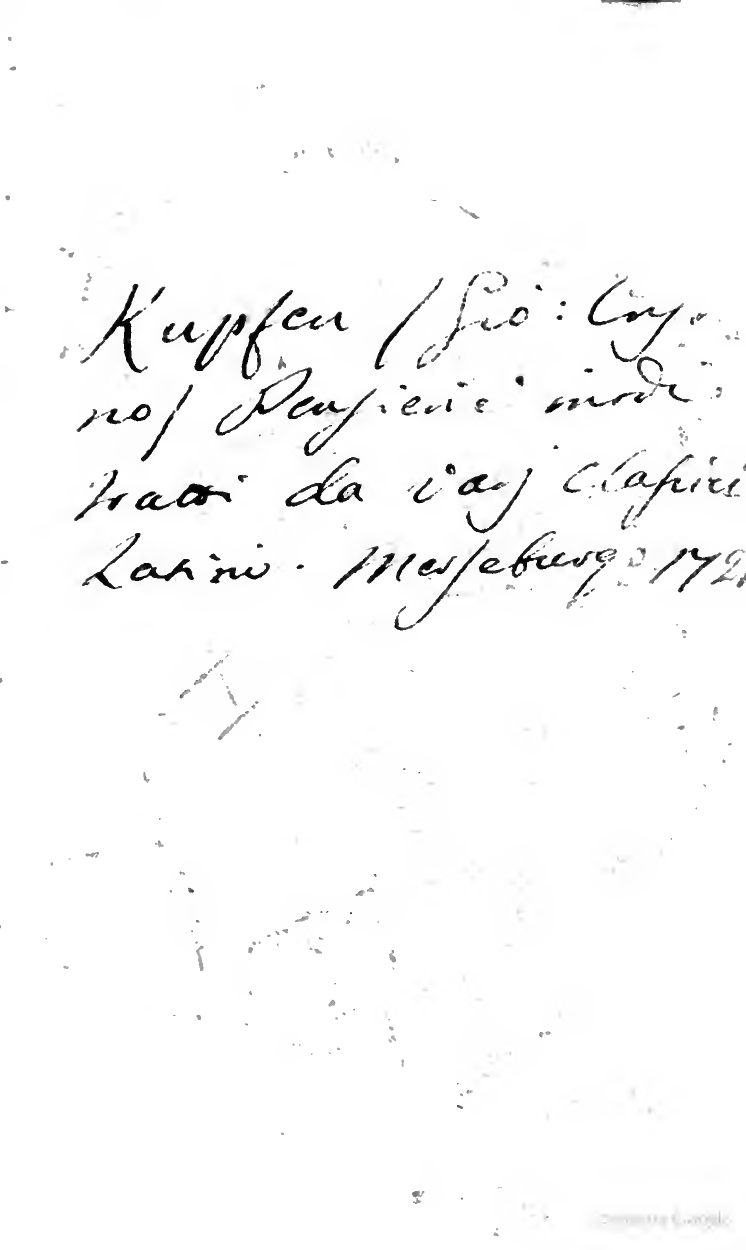 Kupfen (Gio: Cry.
no) Pensieri mor:
tratti da varj Classici
Latini. Merseburg. 172